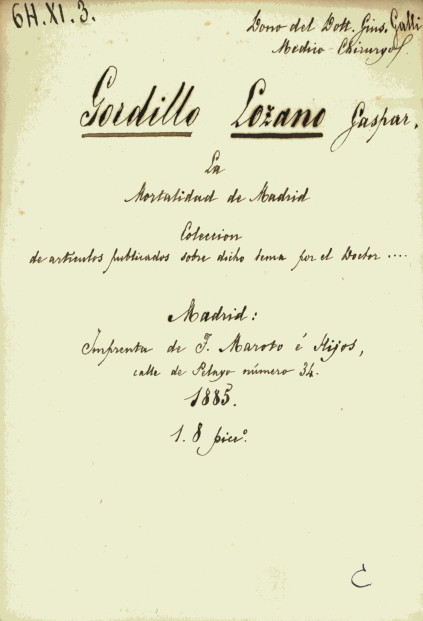 6H.XI.3.
Dono del Dott. Gius. Galli
Medico-Chirurgo
Gordillo Lozano Gaspar.
La
Mortalidad de Madrid
Coleccion
de artículos publicados sobre dicho tema por el Doctor ....
Madrid:
Imprenta de F. Maroto é Hijos,
calle de Pelayo número 34.
1885.
1. 8 picc°.
C